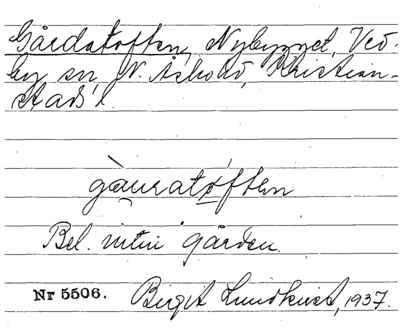 Gårdatoften, Nybygget, Ved-
by sn, N. Åsbo hd, Kristian-
stads l.
gàuratóften
Bel. intill gården.
Nr 5506. Birgit Lundkvist, 1937.